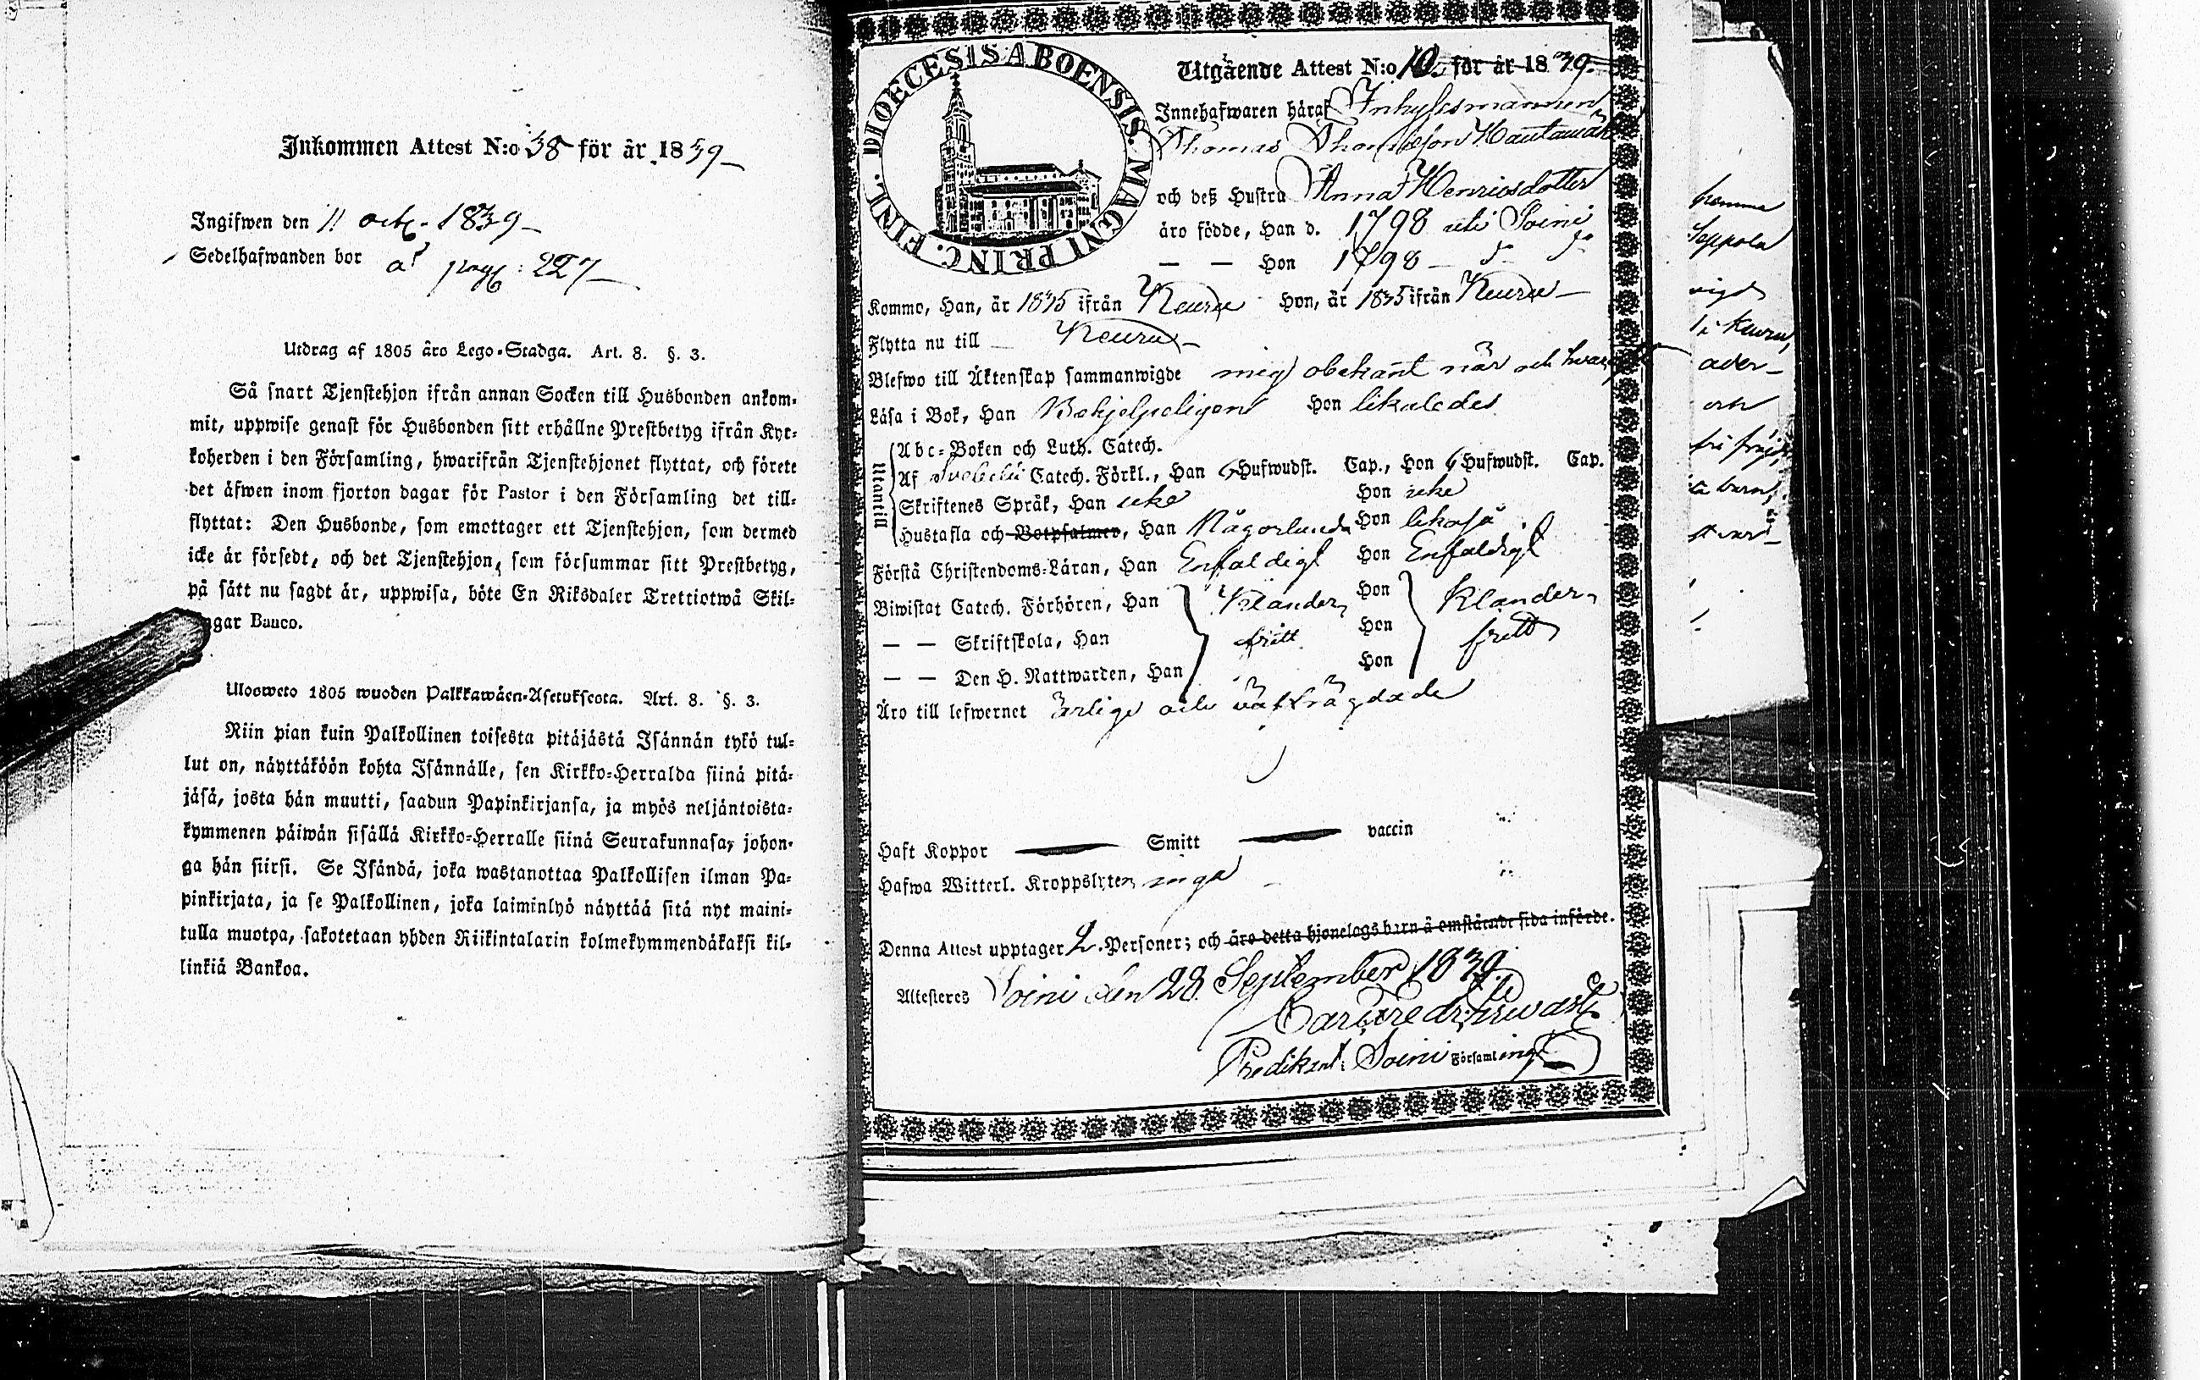 Inkommen Attest N:o 38 för år 1839
Ingifwen den 11 octb. 1839
Sedelhafwanden bor å pag: 227
Utdrag af 1805 åro Lego-Stadga. Art. 8. §. 3.
Så snart Tjenstehjon ifrån annan Socken till Husbonden ankom-
mit, uppwise genast för Husbonden sitt erhållne Prestbetyg ifrån Kyr-
koherden i den Församling, hwarifrån Tjenstehjonet flyttat, och förete
det äfwen inom fjorton dagar för Pastor i den Församling det till-
flyttat: Den Husbonde, som emottager ett Tjenstehjon, som dermed
icke är försedt, och det Tjenstehjon, som försummar sitt Prestbetyg,
på sätt nu sagdt är, uppwisa, böte En Riksdaler Trettiotwå Skil-
gar Banco.
Ulosweto 1805 wuoden Palkkawäen-Asetuksesta. Art. 8. §. 3.
Niin pian kuin Palkollinen toisesta pitäjästä Isännän tykö tul-
lut on, näyttäköön kohta Isännälle, sen Kirkko-Herralda siinä pitä-
jäsä, josta hän muutti, saadun Papinkirjansa, ja myös neljäntoista-
kymmenen päiwän sisällä Kirkko-Herralle siinä Seurakunnasa, johon-
ga hän siirsi. Se Isändä, joka wastanottaa Palkollisen ilman Pa-
pinkirjata, ja se Palkollinen, joka laiminlyö näyttää sitä nyt maini-
tulla muotoa, sakotetaan yhden Riikintalarin kolmekymmendäkaksi kil-
linkiä Bankoa.
DIOECESIS ABOENSIS. MAGNI PRINC. FINL.
Utgående Attest N:o 10. för år 1839.
Innehafwaren häraf Inhysesmannen
Thomas Thomasson Hautamäki
och deß Hustru Anna Henricsdotter
äro födde, Han d. 1798 uti Soini
— — Hon 1798
Kommo, Han, år 1835 ifrån Keuru Hon, år 1835 ifrån Keuru
Flytta nu till Keuru
Blefwo till Äktenskap sammanwigde mig obekant när och hvar
Läsa i Bok, Han Behjelpeligen Hon likaledes
Utantill
Abc-Boken och Luth. Catech.
Af Svebelii Catech. Förkl., Han 6 Hufwudst. Cap., Hon 6 Hufwudst. Cap.
Skriftenes Språk, Han icke Hon icke
Hustafla och Botpsalmer, Han Någorlunda Hon likaså
Förstå Christendoms-Läran, Han Enfaldigt Hon Enfaldigt
Biwistat Catech. Förhören, Han Klander- Hon Klander-
— — Skriftskola, Han fritt Hon fritt
— — Den H. Nattwarden, Han Hon
Äro till lefwernet ärliga och välfrägdade
Haft Koppor Smitt vaccin
Hafwa Witterl. Kroppslyten inga
Denna Attest upptager 2 Personer; och äro detta hjonelags barn å omstående sida införde.
Attesteres Soini den 28 September 1839.
Predikant i Soini Församling